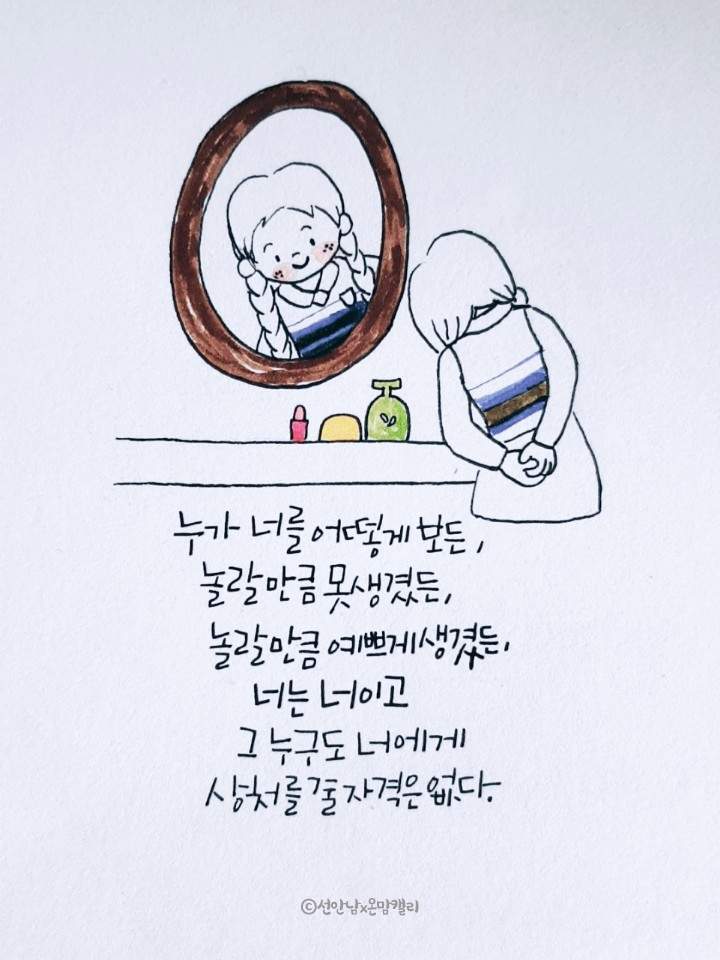 누가 너를 어떻게 보든,
놀랄만큼 못생겼든,
놀랄만큼 예쁘게생겼든,
너는 너이고
그 누구도 너에게
상처를 줄 자격은 없다.
©선안남x온맘캘리